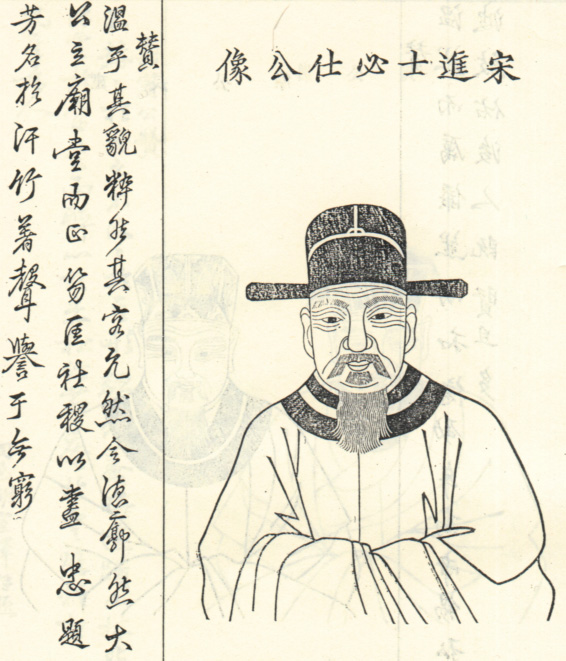 宋進士必仕公像
贊
溫乎其貌粹然其容允然令德廓然大
公立廟堂而正笏匡社稷以盡忠題
芳名於汗竹著聲譽于無窮